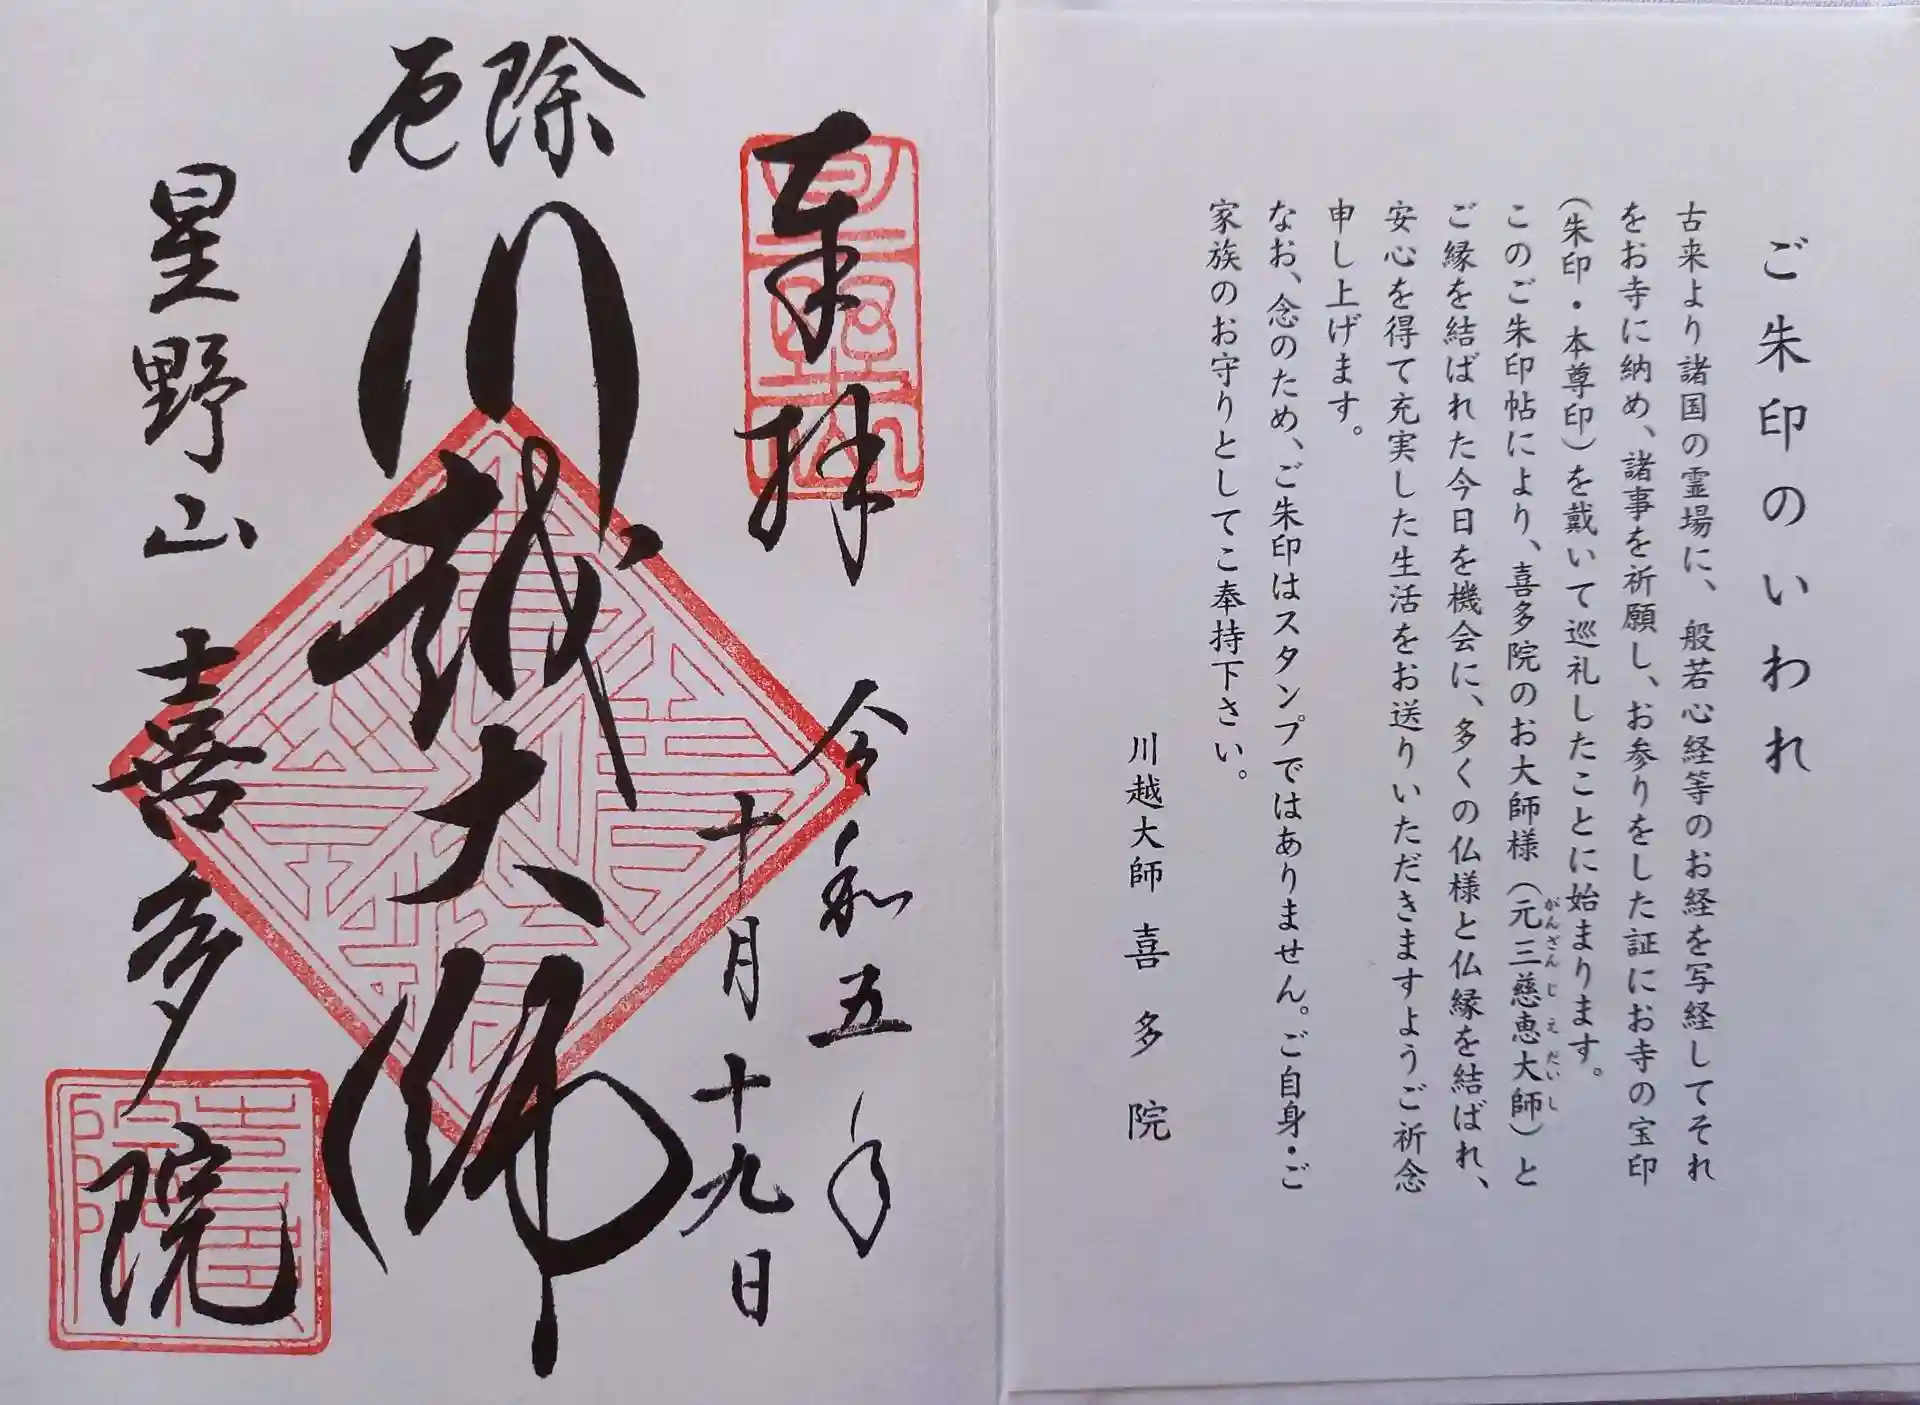 ご朱印のいわれ
古来より諸国の霊場に、般若心経等のお経を写経してそれ
をお寺に納め、諸事を祈願し、お参りをした証にお寺の宝印
(朱印・本尊印)を戴いて巡礼したことに始まります。
このご朱印帖により、喜多院のお大師様(元三慈恵大師)と
がんざんじえだいし
ご縁を結ばれた今日を機会に、多くの仏様と仏縁を結ばれ、
安心を得て充実した生活をお送りいただきますようご祈念
申し上げます。
なお、念のため、ご朱印はスタンプではありません。ご自身・ご
家族のお守りとしてご奉持下さい。
川越大師 喜多院
奉拝
令和五年
十月十九日
厄除
川越大師
星野山 喜多院